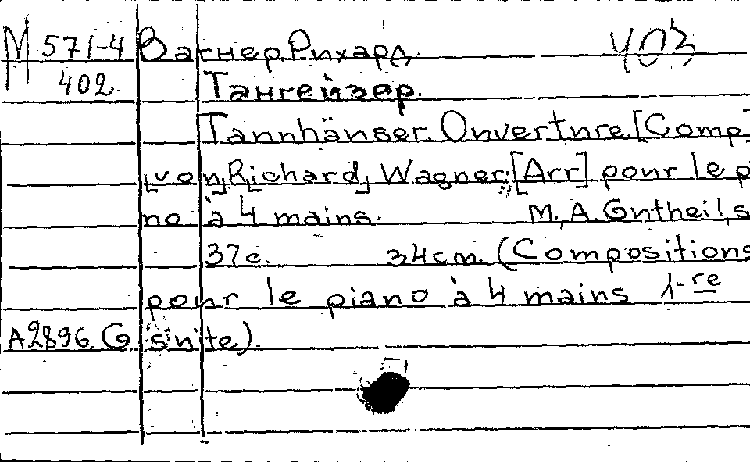 М 571-4 Вагнер, Рихард. 403
402 Тангейзер.
Tannhäuser. Ouverture [Comp.
[von] Richard Wagner. [Arr] pour le p
no à 4 mains. M., A. Gutheil, s
37c. 34cm. (Compositions
pour le piano à 4 mains 1-re
A2896 G suite).